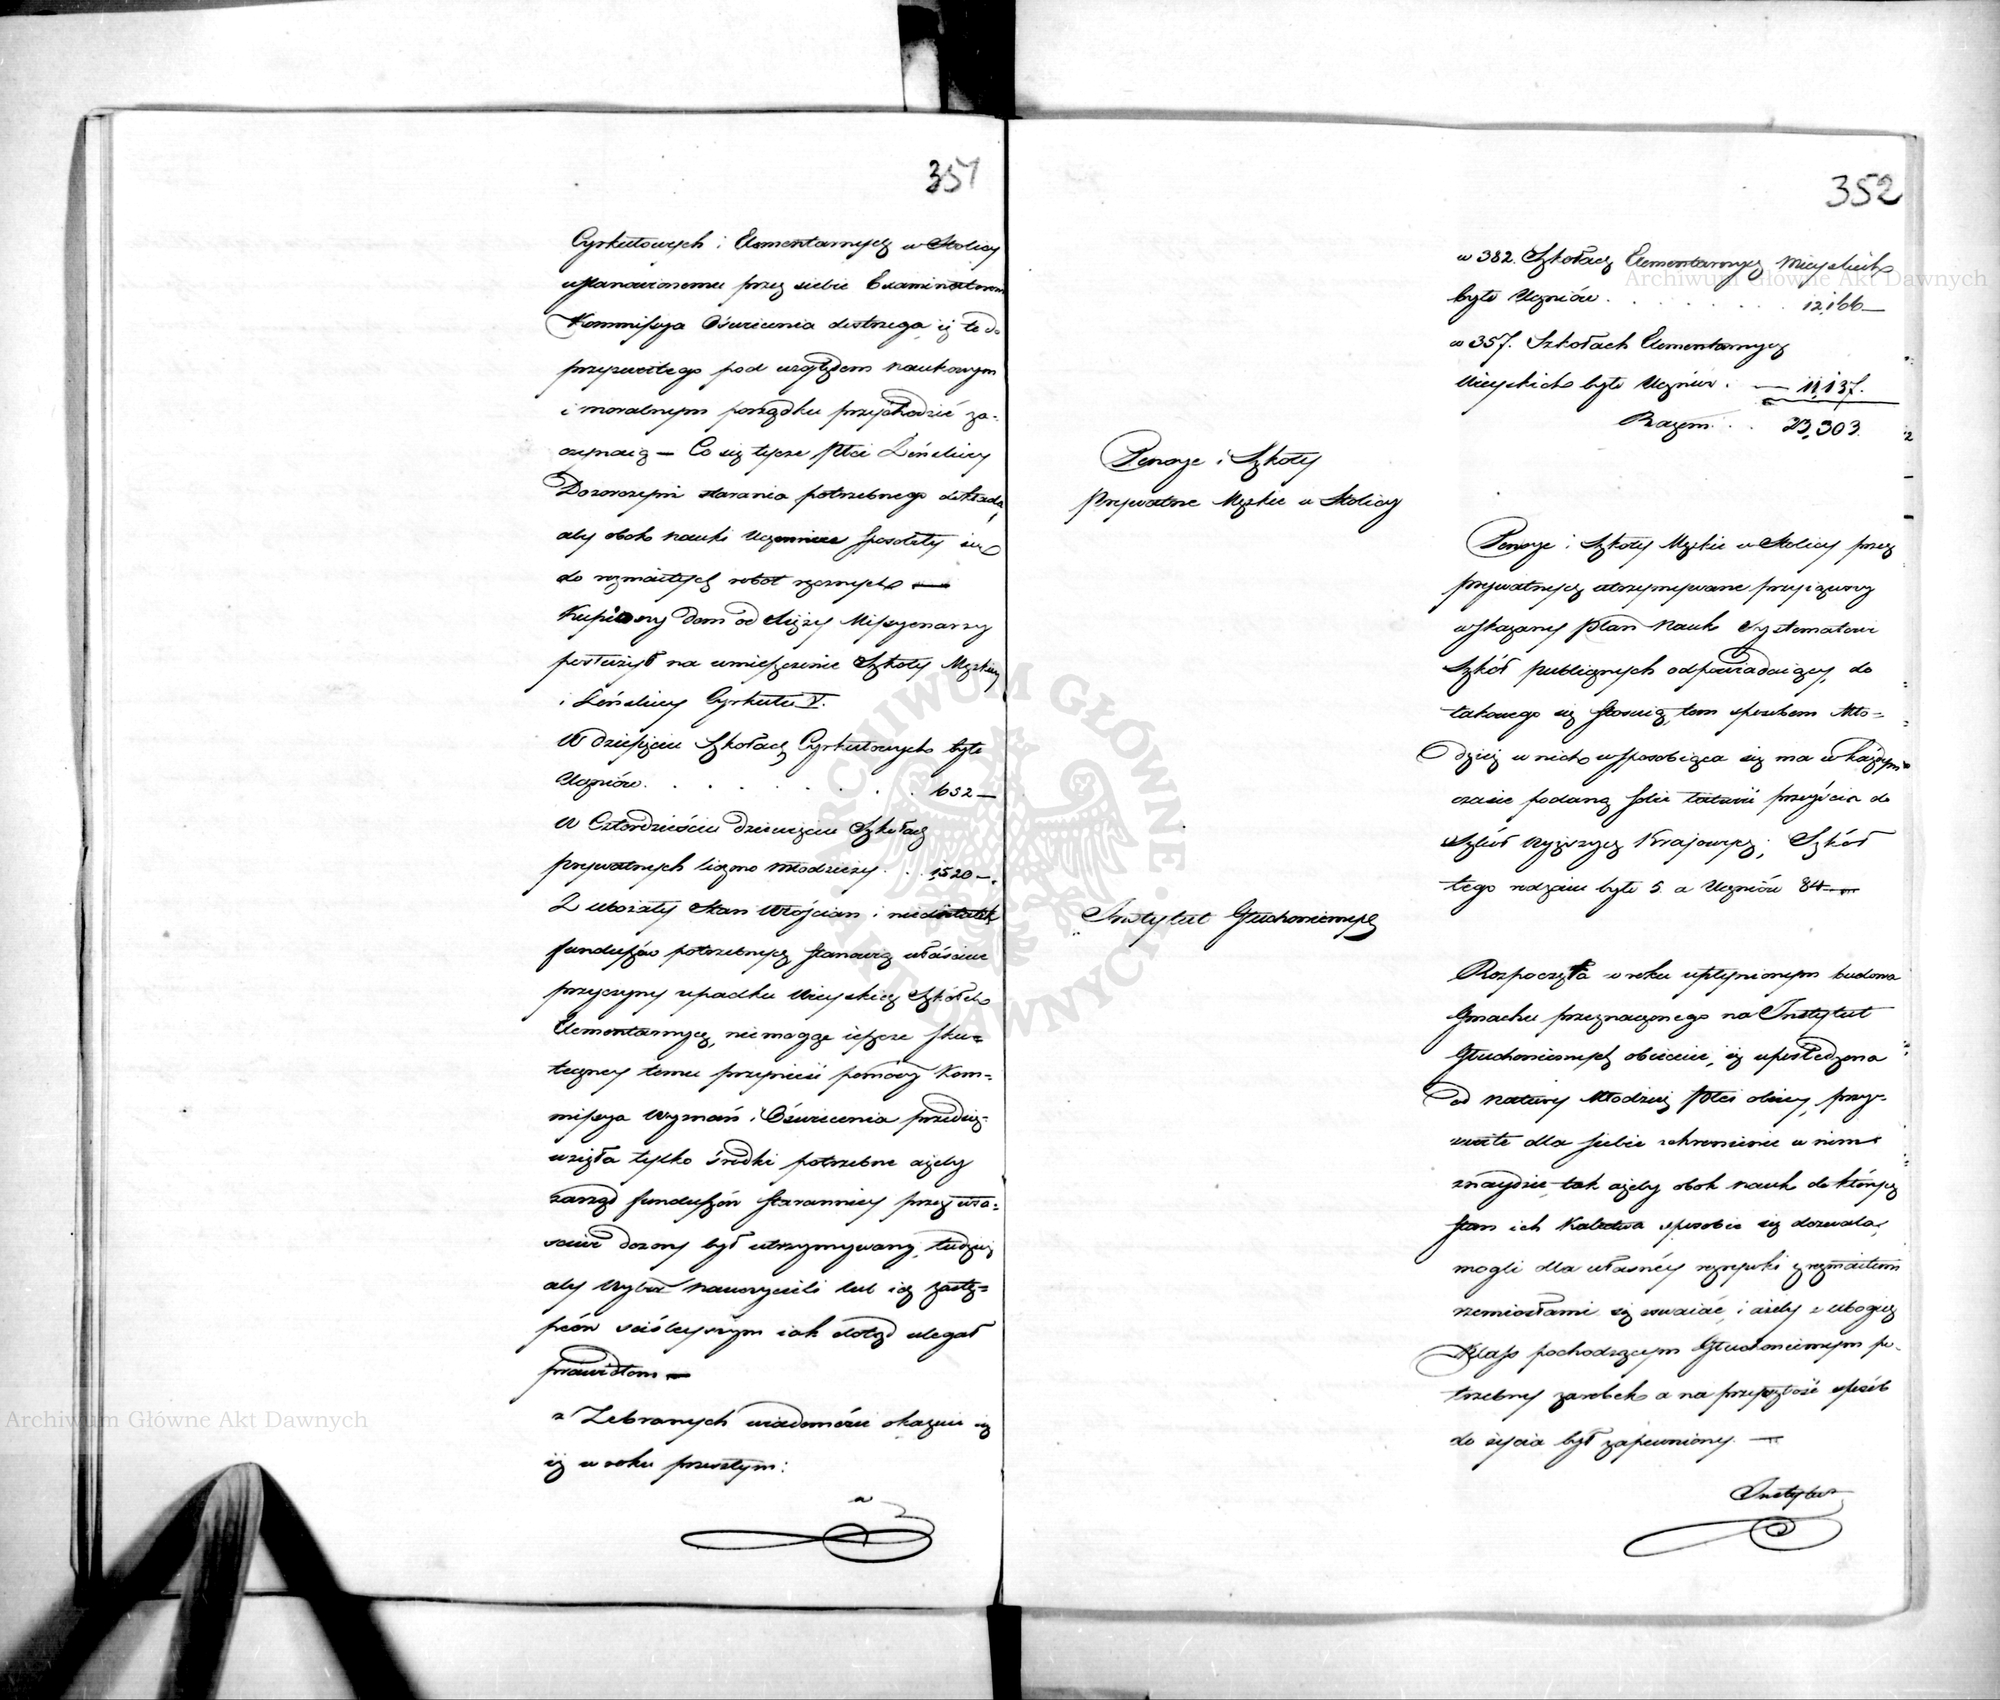 351
Cyrkułowych i Elementarnych w Stolicy
ustanowionemu przez siebie Examinatorowi
Kommissya Oświecenia dostrzega, iż te do
przyzwoitego pod względem naukowym
i moralnym porządku przychodzić za-
czynaią — Co się tycze Płci Żeńskiey
Dozorczynie starania potrzebnego dokłada,
aby obok nauki Uczennice sposobiły się
do rozmaitych robót ręcznych —
Kupiony Dom od Xięży Missyonarzy
posłużył na umieszczenie Szkoły Męzkiey
i Żeńskiey Cyrkułu V.
W dziesięciu Szkołach Cyrkułowych było
Uczniów . . . . . . . 652 —
W Czterdziestu dziewięciu Szkołach
prywatnych liczono młodzieży . . 1520 —
Zubożały Stan Włościan i niedostatek
funduszów potrzebnych stanowią właściwe
przyczyny upadku Wieyskich Szkółek
Elementarnych, nie mogąc ieszcze sku-
teczney temu przynieść pomocy Kom-
missya Wyznań i Oświecenia przedsię-
wzięła tylko środki potrzebne ażeby
zarząd funduszów staranniey przez wła-
ściwe dozory był utrzymywany, tudzież
aby wybór nauczycieli lub ich zastę-
pców ściśleyszym iak dotąd ulegał
prawidłom —
z Zebranych wiadomości okazuie się
iż w roku przeszłym:
w
352
w 382. Szkołach Elementarnych Mieyskich
było Uczniów . . . . . . . 12,166 —
w 357. Szkołach Elementarnych
Wieyskich było Uczniów . — 11,137.
Razem . . 23,303.
Pensye i Szkoły
Prywatne Męzkie w Stolicy
Pensye i Szkoły Męzkie w Stolicy przez
prywatnych utrzymywane przyięzwszy
wskazany Plan Nauk Systematowi
Szkół publicznych odpowiadaiący, do
takowego się stosuią tym sposobem Mło-
dzież w nich usposobiaiąca się ma w każdym
czasie podaną sobie łatwość przeyścia do
Szkół Wyższych Kraiowych; Szkół
tego rodzaiu było 5. a Uczniów 84 —
Instytut Głuchoniemych
Rozpoczęta w roku upłynionym budowa
Gmachu przeznaczonego na Instytut
Głuchoniemych obiecuie, iż upośledzona
od natury Młodzież Płci obiey, przy-
zwoite dla siebie schronienie w nim
znaydzie, tak ażeby obok nauk do których
stan ich kalectwa sposobić się dozwala,
mogli dla własney rozrywki z rozmaitemi
rzemiosłami się oswaiać, i ażeby z ubogich
Klass pochodzącym Głuchoniemym po-
trzebny zarobek a na przyszłość sposób
do życia był zapewniony. —
Instytut
Archiwum Główne Akt Dawnych
Archiwum Główne Akt Dawnych
ARCHIWUM GŁÓWNE AKT DAWNYCH